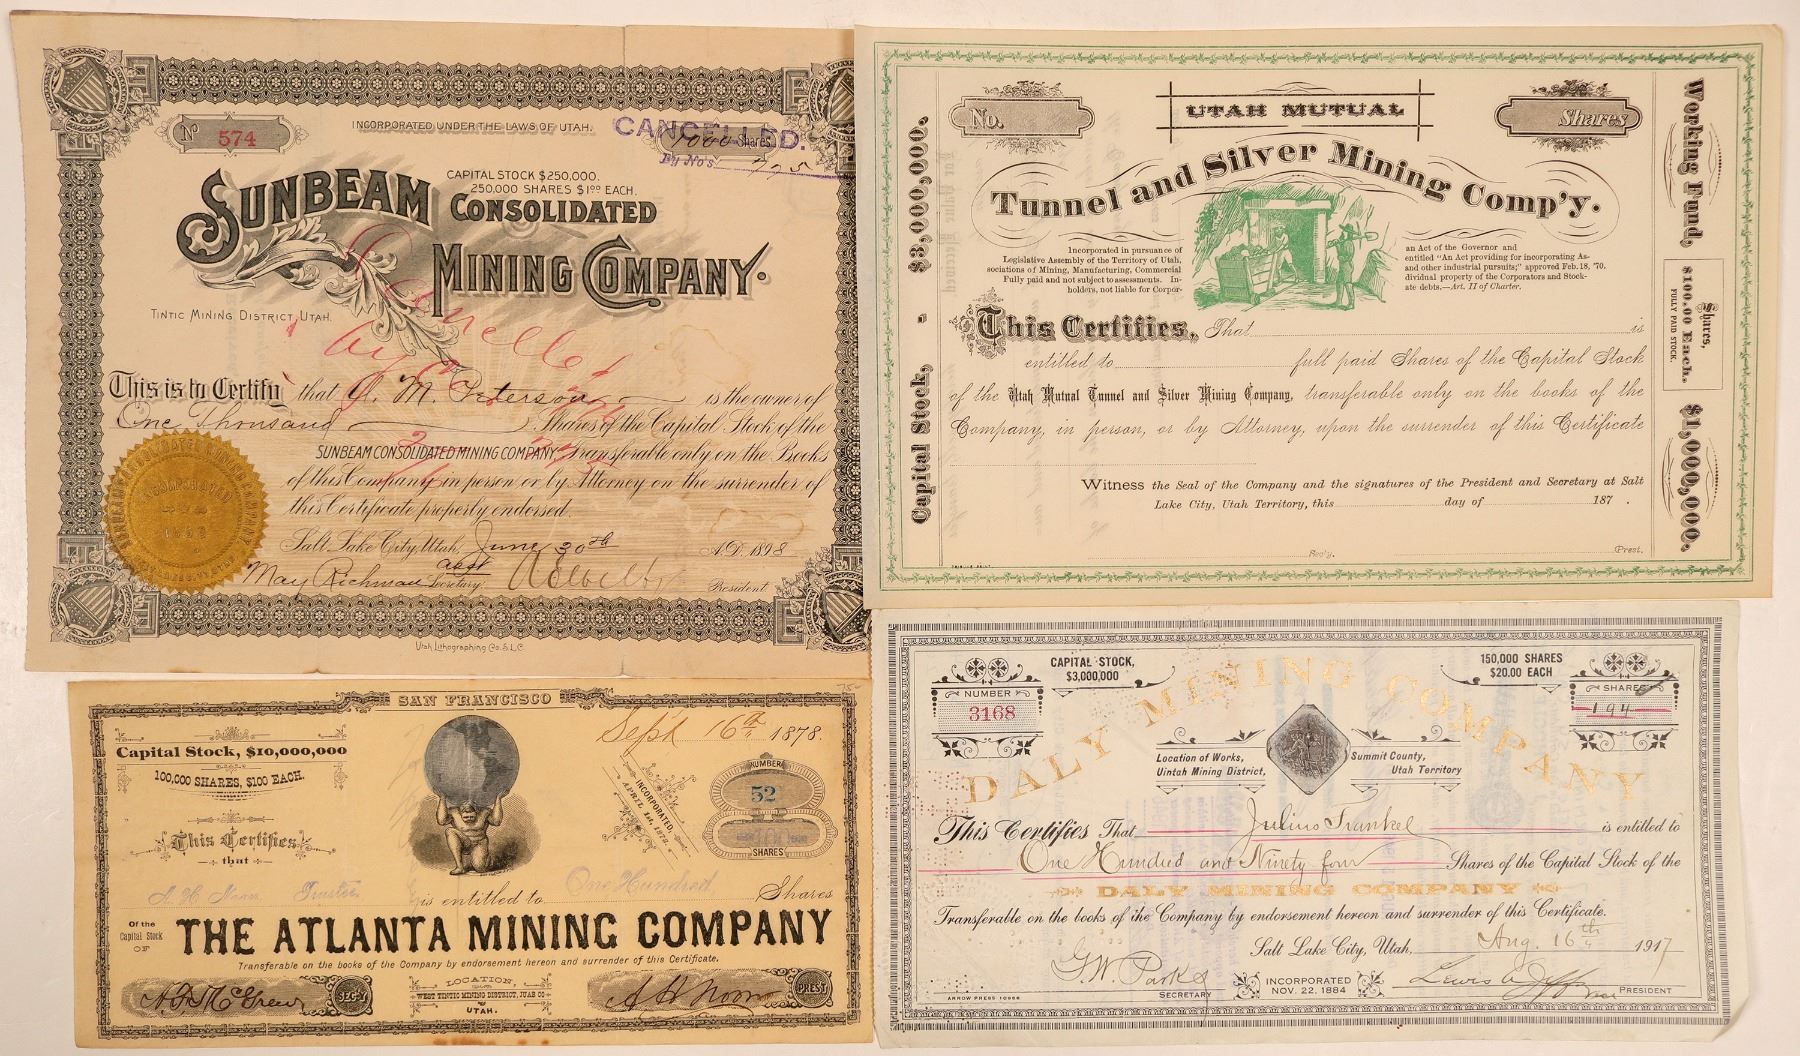 No 574
INCORPORATED UNDER THE LAWS OF UTAH.
CANCELLED.
1000 Shares
By No's 775
CAPITAL STOCK $250,000.
250,000 SHARES $1.00 EACH.
SUNBEAM CONSOLIDATED
MINING COMPANY.
TINTIC MINING DISTRICT, UTAH.
Cancelled
by
This is to Certify that A. M. Peterson is the owner of
One Thousand Shares of the Capital Stock of the
SUNBEAM CONSOLIDATED MINING COMPANY Transferable only on the Books
of this Company in person or by Attorney on the surrender of
this Certificate properly endorsed.
Salt Lake City, Utah, June 30th A.D. 1898
May Richman asst Secretary. President
Utah Lithographing Co. S.L.C.
No.
UTAH MUTUAL
Shares
Tunnel and Silver Mining Comp'y.
Incorporated in pursuance of
Legislative Assembly of the Territory of Utah,
sociations of Mining, Manufacturing, Commercial
Fully paid and not subject to assessments. In-
holders, not liable for Corpor-
an Act of the Governor and
entitled "An Act providing for incorporating As-
and other industrial pursuits;" approved Feb. 18, '70.
dividual property of the Corporators and Stock-
ate debts.—Art. II of Charter.
This Certifies, That is
entitled to full paid Shares of the Capital Stock
of the Utah Mutual Tunnel and Silver Mining Company, transferable only on the books of the
Company, in person, or by Attorney, upon the surrender of this Certificate
Witness the Seal of the Company and the signatures of the President and Secretary at Salt
Lake City, Utah Territory, this day of 187 .
Sec'y. Prest.
TRIBUNE PRINT.
Capital Stock, - $3,000,000.
Working Fund, $1,000,000.
Shares,
$100.00 Each.
FULLY PAID STOCK.
SAN FRANCISCO
Sept 16th 1878.
Capital Stock, $10,000,000
100,000 SHARES, $100 EACH.
INCORPORATED,
APRIL 1st, 1878.
NUMBER
52
100
SHARES
This Certifies
that
A. H. Noon Trustee is entitled to One Hundred Shares
Of the
Capital Stock
OF
THE ATLANTA MINING COMPANY
Transferable on the books of the Company by endorsement hereon and surrender of this Certificate.
SEC'Y
LOCATION,
WEST TINTIC MINING DISTRICT, JUAB CO
UTAH.
A H Noon PREST
CAPITAL STOCK,
$3,000,000
150,000 SHARES
$20.00 EACH
NUMBER
3168
SHARES
194
DALY MINING COMPANY
Location of Works,
Uintah Mining District,
Summit County,
Utah Territory
This Certifies That Julius Frankel is entitled to
One Hundred and Ninety four Shares of the Capital Stock of the
DALY MINING COMPANY
Transferable on the books of the Company by endorsement hereon and surrender of this Certificate.
Salt Lake City, Utah, Aug. 16th 1917
G.W. Parks
SECRETARY
INCORPORATED
NOV. 22. 1884
PRESIDENT
ARROW PRESS 10966